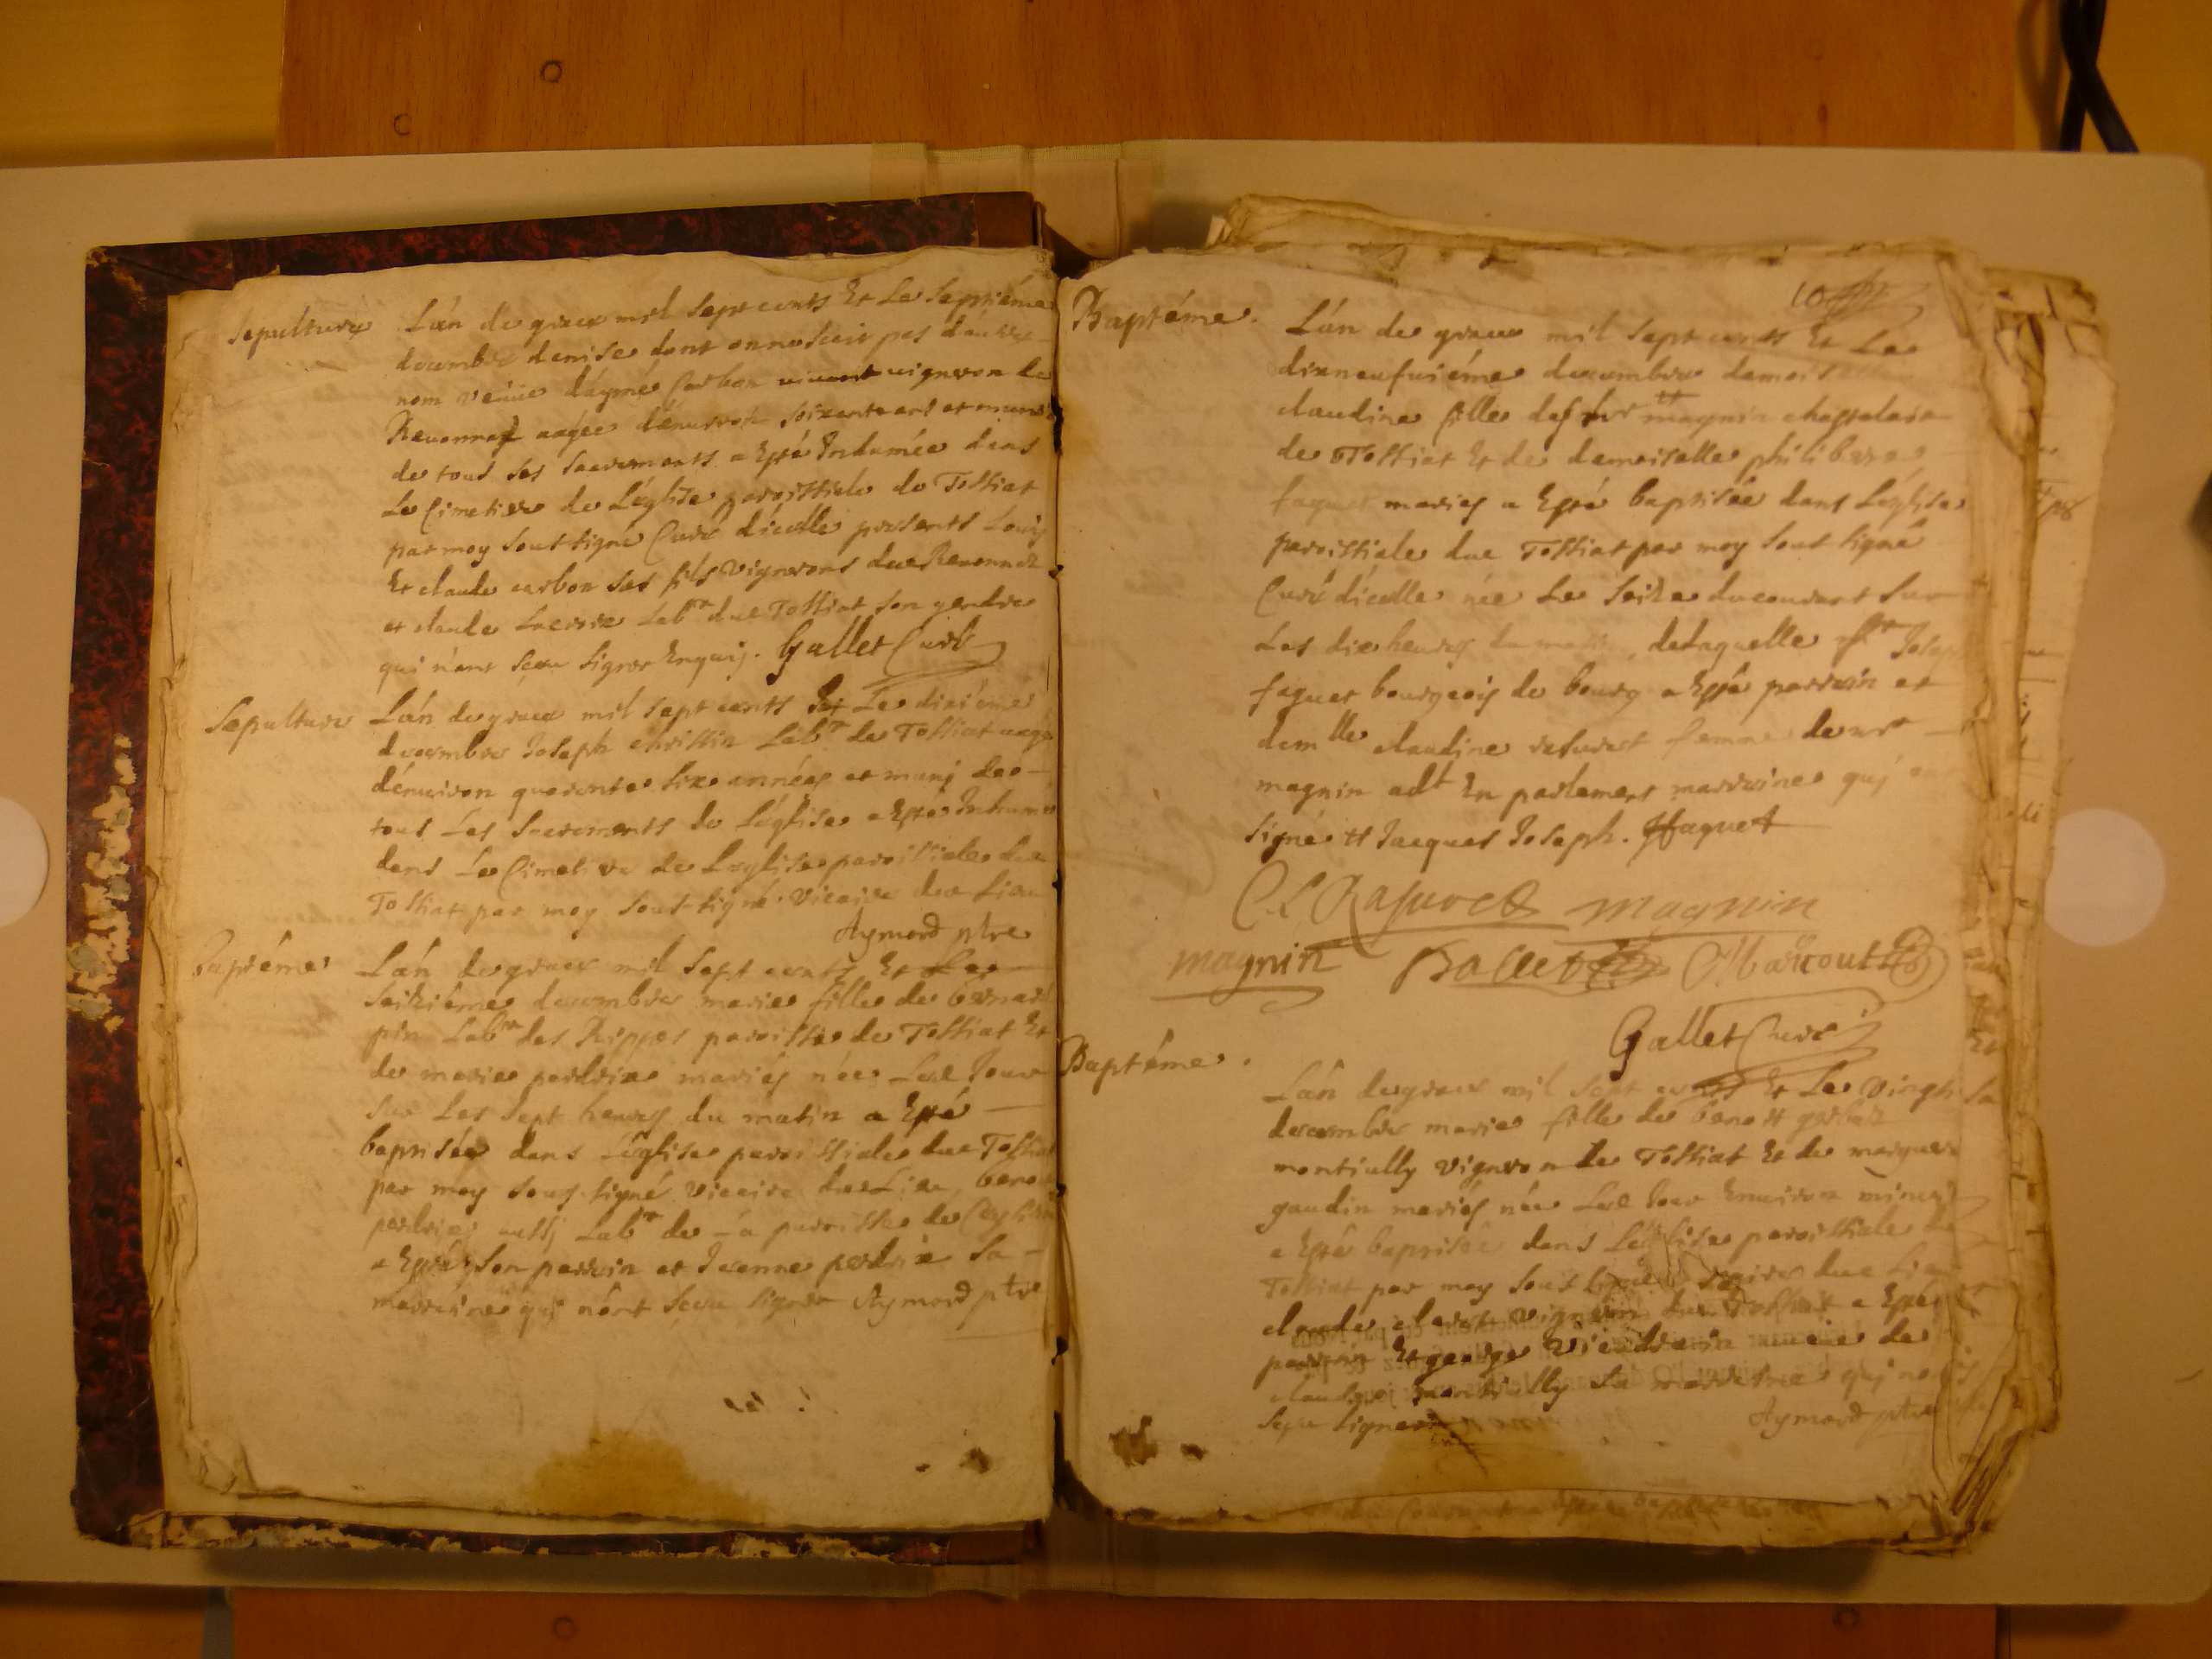 Sepulture Lán de grace mil sept cents Et Le Septiéme
decembre denise dont onne scait pas dautre
nom veüue dáymé Carbon vivant vigneron de
Reuonnaz aagée dénuiron soixante ans et munie
de tous ses sacrements a Esté Inhumée dans
Le Cimetiere de Léglise parroissiale de Tossiat
par moy soussigné Curé dícelle presents Louis
Et claude carbon ses fils vignerons de Reuonnaz
et claude Lab^r de Tossiat son gendre
qui n'ont sceu signer Enquis. Gallet Curé
Sepulture Lán de grace mil sept cents Et Le dixiéme
decembre Joseph christin Lab^r de Tossiat aagé
dénuiron quarante six années et muni de
tous Les sacrements de Léglise a Esté Inhumé
dans Le Cimetiere de Léglise parroissiale de
Tossiat par moy soussigné vicaire du Lieu
Aymard ptre
Baptéme Lán de grace mil sept cents Et Le
seiziéme decembre marie fille de bernard
pin Lab^r des Rippes paroisse de Tossiat Et
de marie perdrix mariés née Led Jour
sur Les sept heures du matin a Esté
baptisée dans Léglise paroissiale de Tossiat
par moy sous signé vicaire du Lieu, benoit
perdrix aussj Lab^r de La paroisse de
a Esté son parrain et Jeanne perdrix sa
marraine quj nónt sceu signer Aymard ptre
10
Baptéme. Lán de grace mil sept cents Et Le
dixneufuiéme decembre damoiselle
claudine fille de s^r magnin chastelain
de Tossiat Et de damoiselle philiberte
faguet mariés a Esté baptisée dans Léglise
paroissiale de Tossiat par moy sous signé
Curé dícelle née Le seize du courant sur
Les dix heures du matin, de Laquelle s^r Joseph
faguet bourgeois de bourg a Esté parrain et
dem^lle claudine rasurect femme de m^r
magnin ad^t En parlement marraine quj ont
signé Jacques Joseph. JJfaguet
C L Rasurect magnin
magnin Ballet Marcout
Gallet Curé
Baptéme. Lán de grace mil sept cents Et Le vingt
decembre marie fille de benoit
montiully vigneron de Tossiat Et de marguerite
gaudin mariés née Led Jour Enuiron minuit
a Esté baptisée dans Léglise paroissiale de
Tossiat par moy sous signé vicaire du Lieu
claude clerct vigneron de Tossiat a Esté
parrain Et george de
claudine montiully sa marraine quj nont
sceu signer Aymard ptre